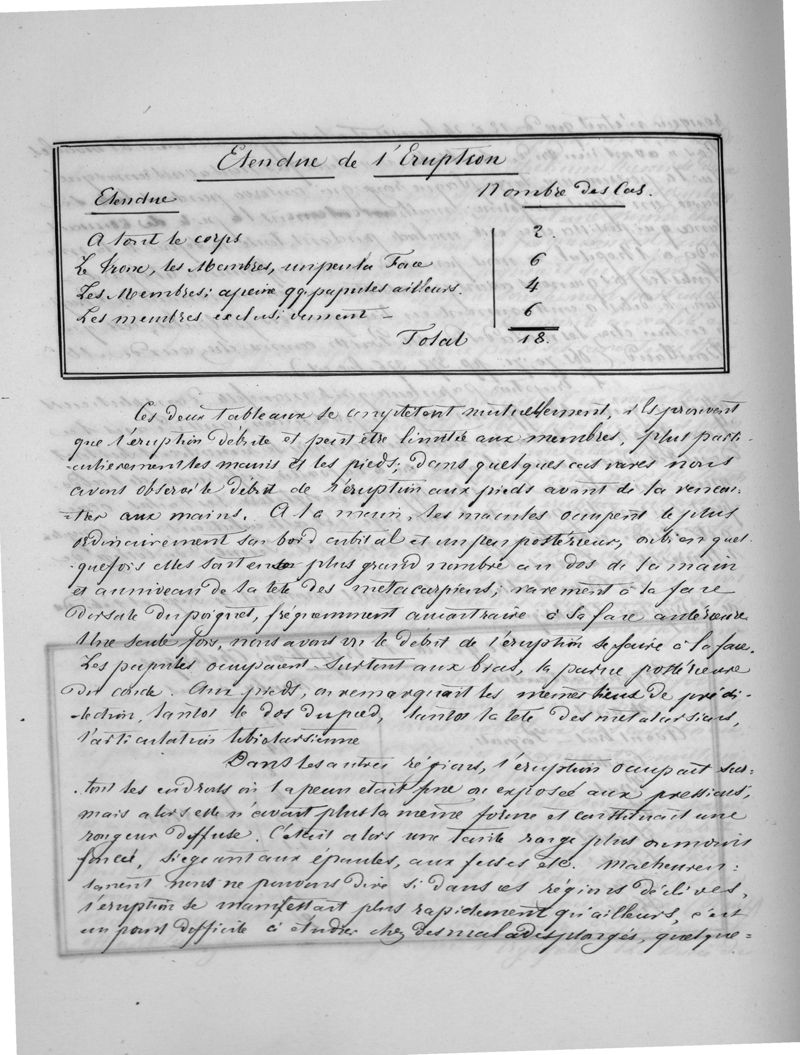 Etendue de l'Eruption
Etendue Nombre des Cas.
A tout le corps 2.
Le tronc, les Membres, un peu la Face 6
Les Membres; a peine qq. papules ailleurs. 4
Les membres exclusivement - 6
Total 18.
Ces deux tableaux se complètent mutuellement, ils prouvent
que l'éruption débute et peut être limitée aux membres, plus parti-
-culièrement les mains et les pieds; dans quelques cas rares nous
avons observé le début de l'éruption aux pieds avant de la rencon-
-trer aux mains. A la main, les macules occupent le plus
ordinairement son bord cubital et un peu postérieur, ou bien quel-
quefois elles sont en plus grand nombre au dos de la main
et au niveau de la tête des métacarpiens; rarement à la face
dorsale du poignet, fréquemment au contraire à la face antérieure.
Une seule fois, nous avons vu le debut de l'éruption se faire à la face.
Les papules occupaient surtout aux bras, la partie postérieure
du coude. Aux pieds, on remarquait les mêmes lieux de prédi-
-lection, tantôt le dos du pied, tantôt la tête des metatarsiens,
l'articulation tibiotarsienne
Dans les autres régions, l'éruption occupait sur-
-tout les endroits où la peau était fine ou exposée aux pressions,
mais alors elle n'avait plus la même forme et constituait une
rougeur diffuse. C'était alors une teinte rouge plus ou moins
foncée, siégeant aux épaules, aux fesses etc. Malheureu-
sement nous ne pouvons dire si dans ces régions déclives,
l'éruption se manifestait plus rapidement qu'ailleurs, c'est
un point difficile à étudier chez des malades plongés, quelque-